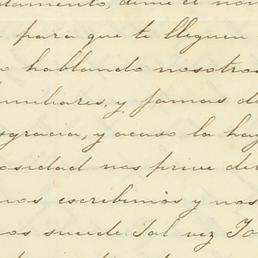 dime el nom
para que te lleguen
hablando nosotros
miliares, y jamas de
sgracia, y acaso la hay
osidad nos prive del
nos escribimos y nos
nos sucede. Tal vez